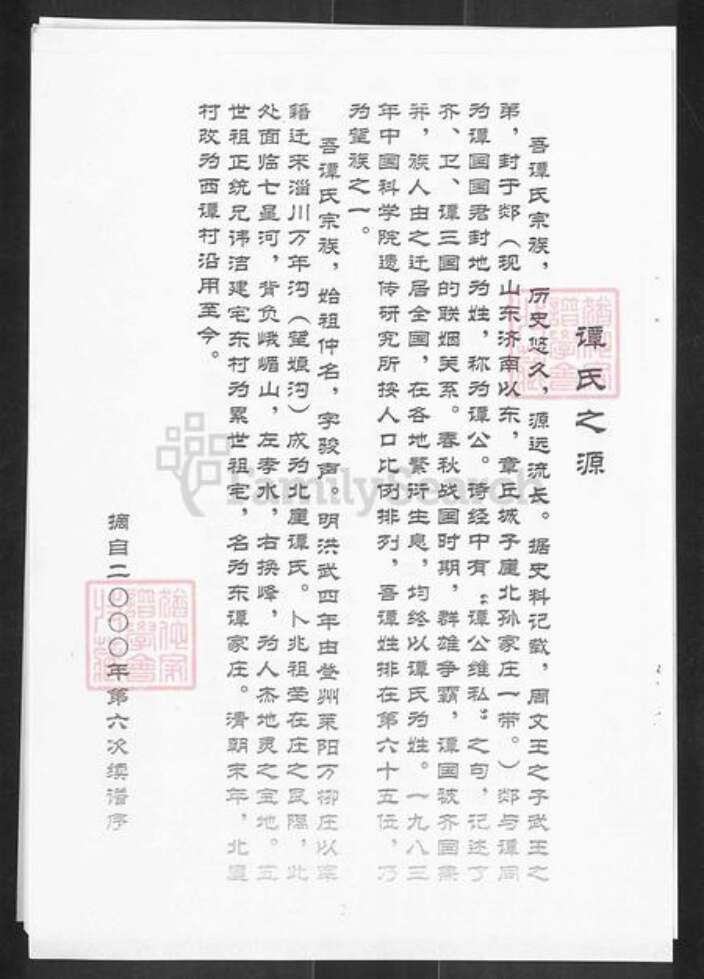 谭氏之源
吾谭氏宗族，历史悠久，源远流长。据史料记载，周文王之子武王之
弟，封于郯（现山东济南以东，章丘城子崖北孙家庄一带。）郯与谭同
为谭国国君封地为姓，称为谭公。诗经中有“谭公维私”之句，记述了
齐、卫、谭三国的联姻关系。春秋战国时期，群雄争霸，谭国被齐国兼
并，族人由之迁居全国，在各地繁衍生息，均终以谭氏为姓。一九八三
年中国科学院遗传研究所按人口比例排列，吾谭姓排在第六十五位，乃
为望族之一。
吾谭氏宗族，始祖仲名，字骏声。明洪武四年由登州莱阳万柳庄以军
籍迁来淄川万年沟（望娘沟）成为北崖谭氏。卜兆祖茔在庄之艮隅，此
处面临七星河，背负峨嵋山，左孝水，右换峰，为人杰地灵之宝地。五
世祖正统兄讳洁建宅东村为累世祖宅，名为东谭家庄。清朝末年，北崖
村改为西谭村沿用至今。
摘自二〇〇〇年第六次续谱序
FamilySearch